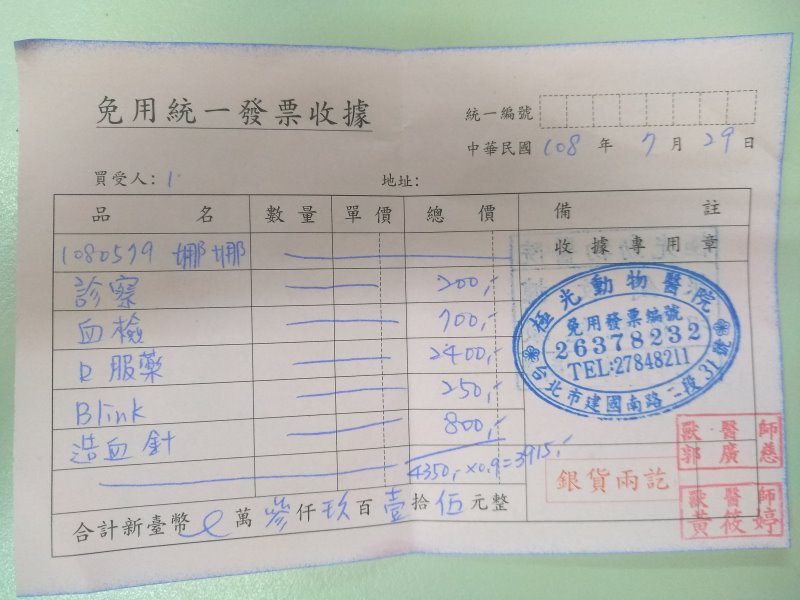 免用統一發票收據
統一編號
中華民國 108 年 7 月 29 日
買受人:
地址:
品名 數量 單價 總價 備註
1080579 娜娜
收據專用章
診察 200,-
血檢 700,-
口服藥 2400,-
Blink 250,-
造血針 800,-
4350,- x0.9=3915,-
合計新臺幣 萬 參 仟 玖 百 壹 拾 伍 元整
極光動物醫院
免用發票編號
26378232
TEL:27848211
台北市建國南路二段31號
獸醫師
郭廣慈
銀貨兩訖
獸醫師
黃筱婷